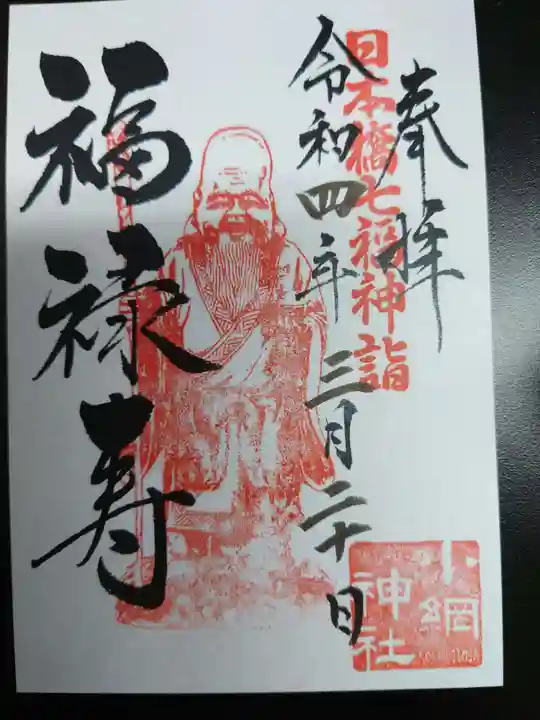 奉拝
日本橋七福神詣
令和四年三月二十日
福禄寿
小網
神社